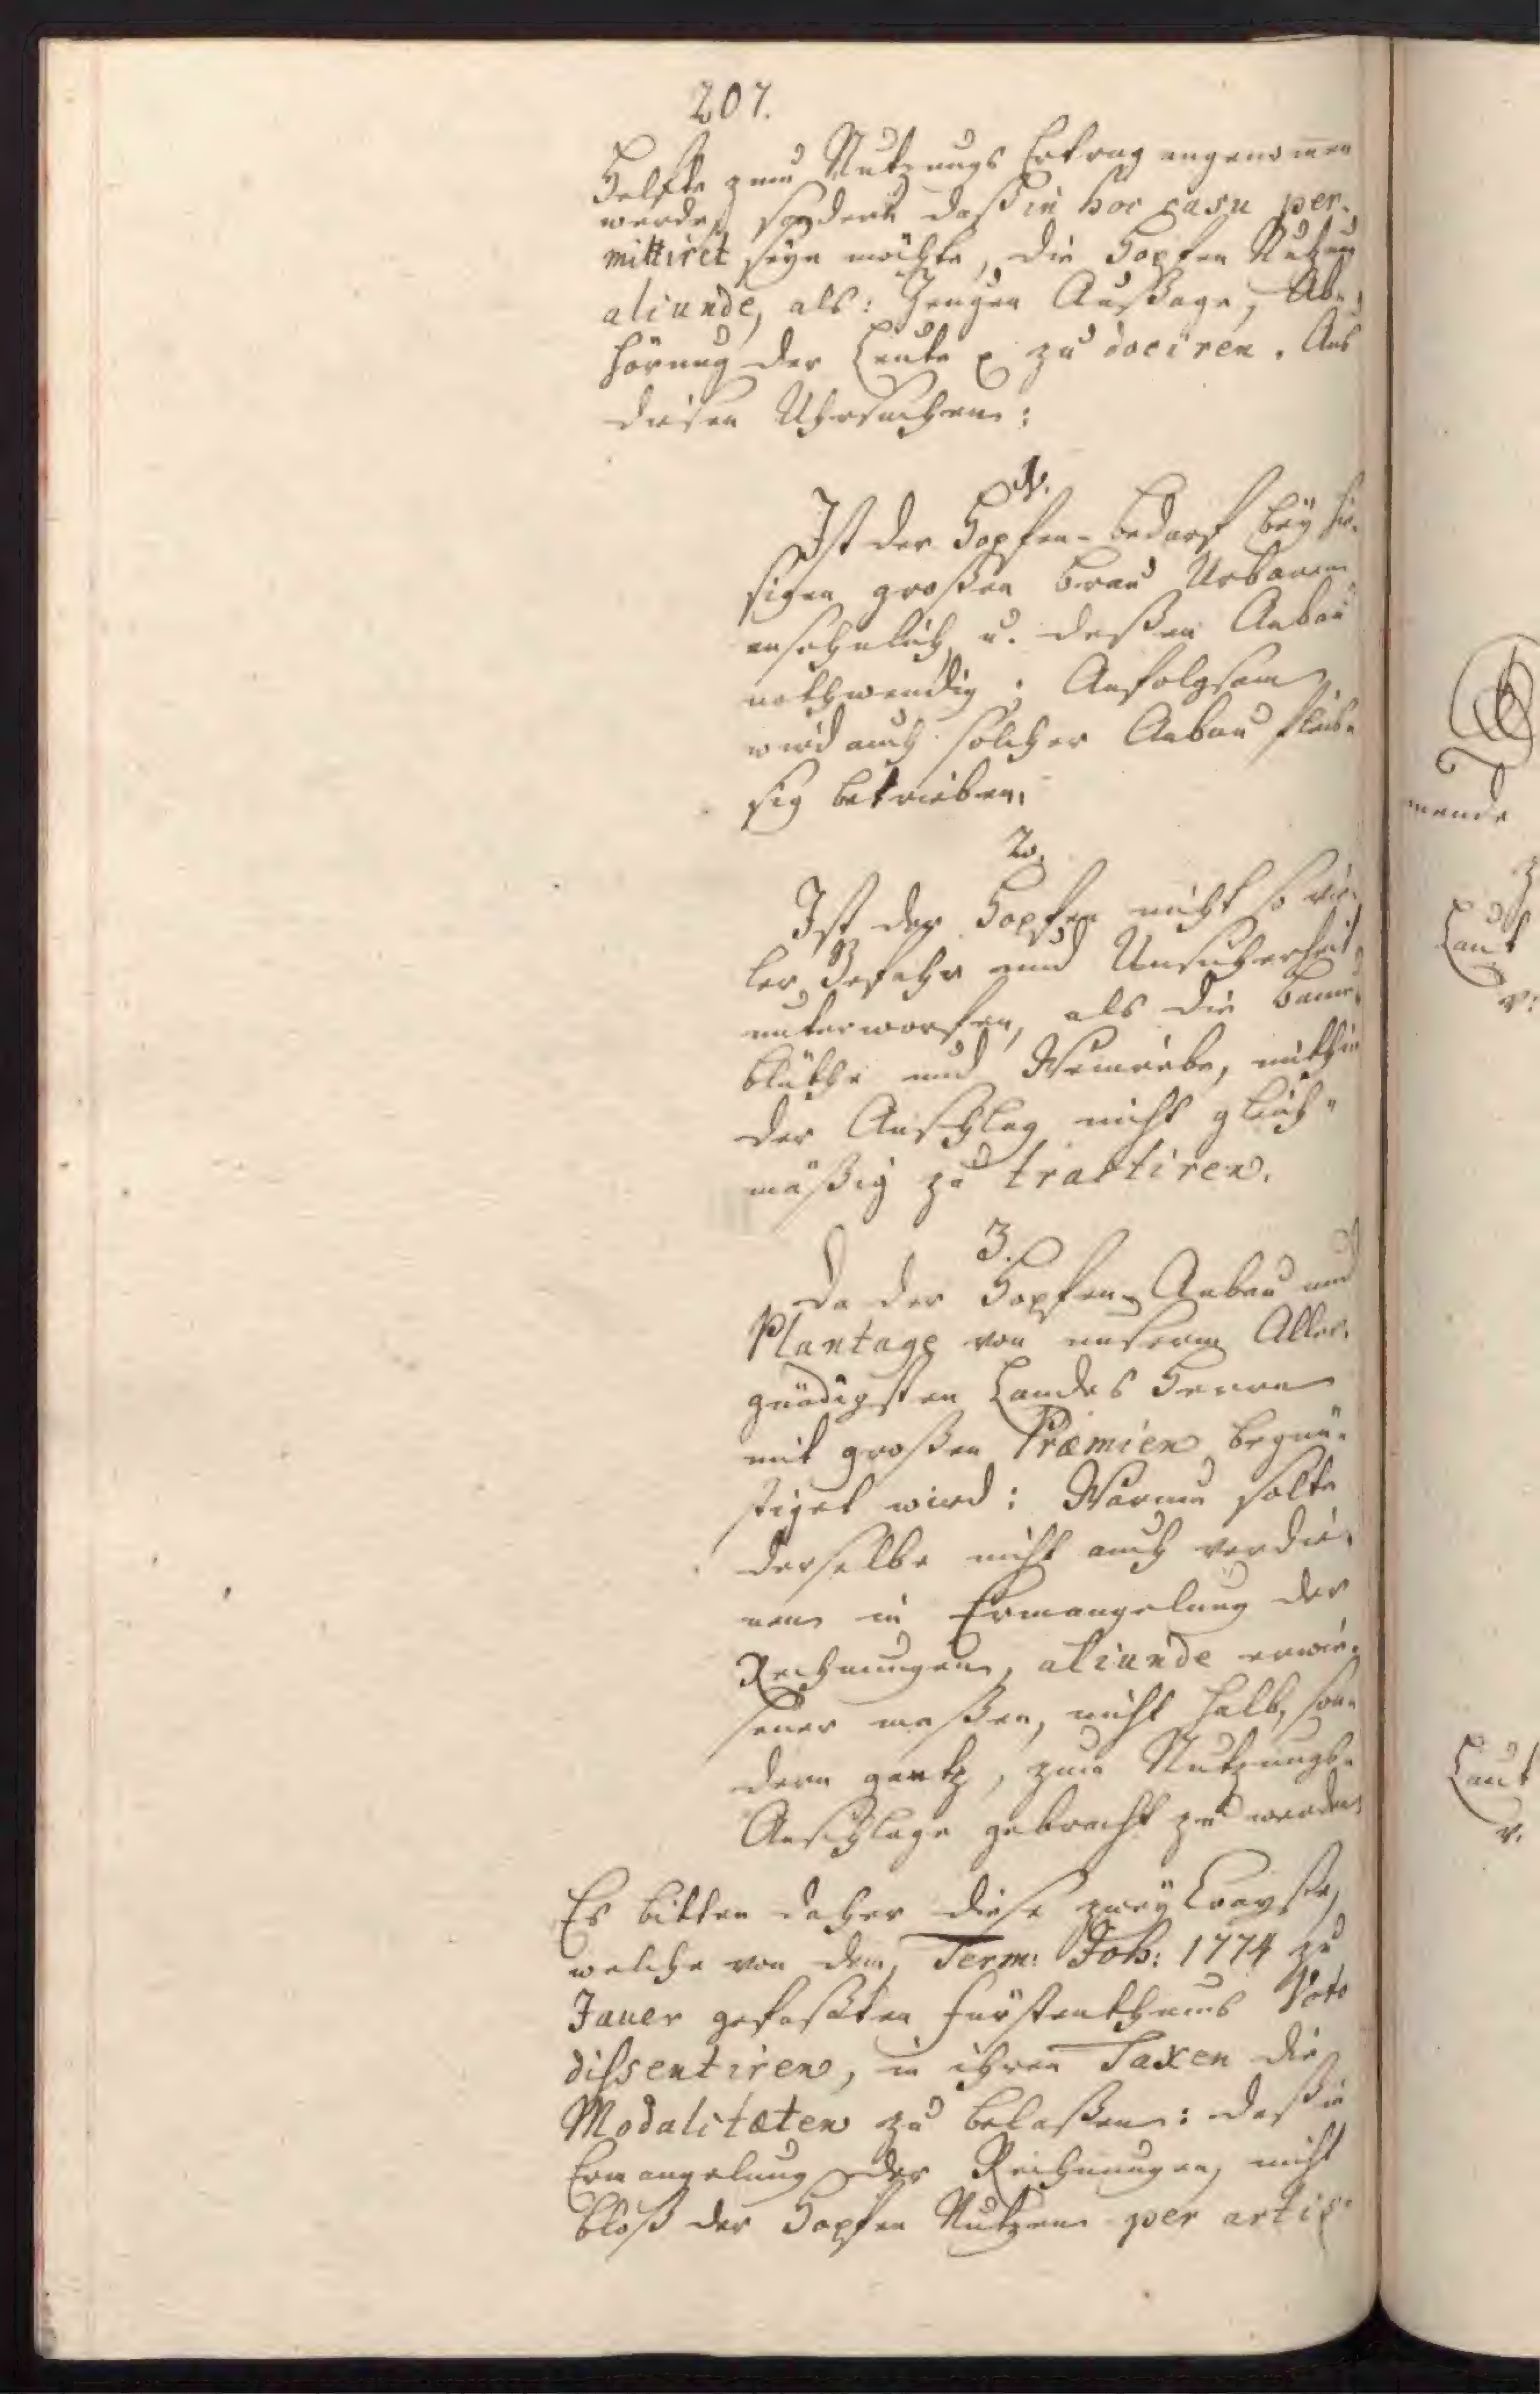 207.
Helfte zum Nutzungs Ertrag angenommen
werde, sondern daß in hoc casu per-
mittiret seyn möchte, die Hopfen Nutzung
aliunde, als: Zeugen Aussage, Ab-
hörung der Leute zu dociren. Aus
diesen Uhrsachen:
1.
Ist der Hopfen-bedarf bey hie-
sigen großen Brau Urbarien
ansehnlich, u. deßen Anbau
nothwendig; Anfolgsam
wird auch solcher Anbau fleis-
sig betrieben.
2.
Ist der Hopfen nicht so vie-
ler Gefahr und Unsicherheit
unterworfen, als die Baum
blüthe und Weinrebe, mithin
der Anschlag nicht gleich-
mäßig zu tractiren.
3.
Da der Hopfen-Anbau und
Plantage von unserm Aller-
gnädigsten Landes Herren
mit großen Præmien begün-
stiget wird: Warum solte
derselbe nicht auch verdie-
nen in Ermangelung der
Rechnungen, aliunde erwie-
sener maßen, nicht halb, son-
dern gantz, zum Nutzungs-
Anschlage gebracht zu werden
Es bitten daher diese zwey Crayße,
welche von dem, Term: Joh: 1774 zu
Jauer gefaßten Fürstenthums Voto
dissentiren, in ihren Taxen die
Modalitæten zu belaßen: daß in
Ermangelung der Rechnungen, nicht
bloß der Hopfen Nutzen per artis
mende
Laut
v:
Laut
v.